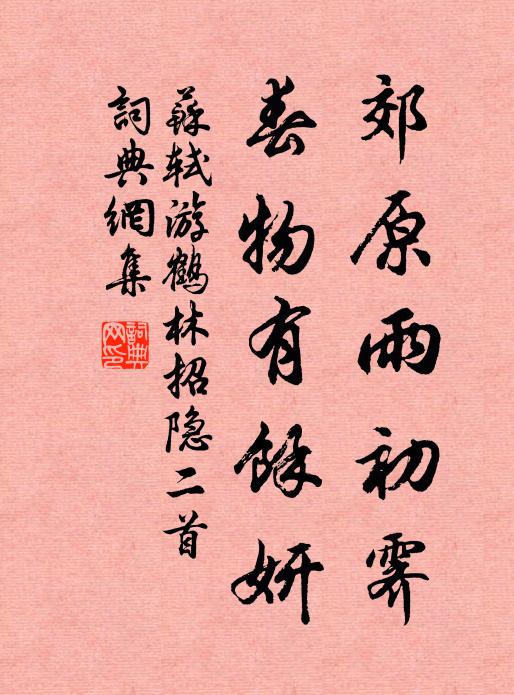 郊原雨初霽
春物有餘妍
蘇軾游鶴林招隐二首
詞典網集
詞典網印